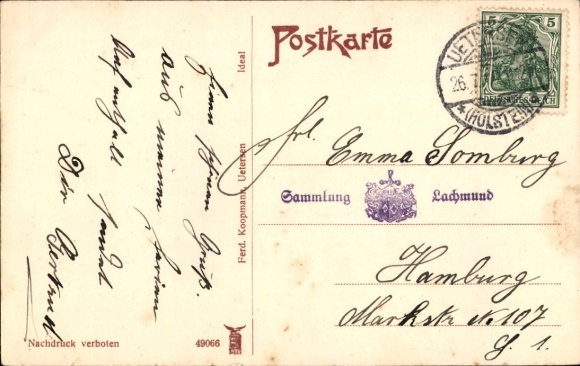 Postkarte
5 5
DEUTSCHES REICH
UETERSEN
26.7
* (HOLSTEIN) *
Frl. Emma Somburg
Sammlung Lachmund
Hamburg
Markstr No 107
Ideal
Ferd. Koopmann, Uetersen
Gruß.
aus meinem Ferien
Aufenthalt sendet
Dir Gertrud
Nachdruck verboten
49066